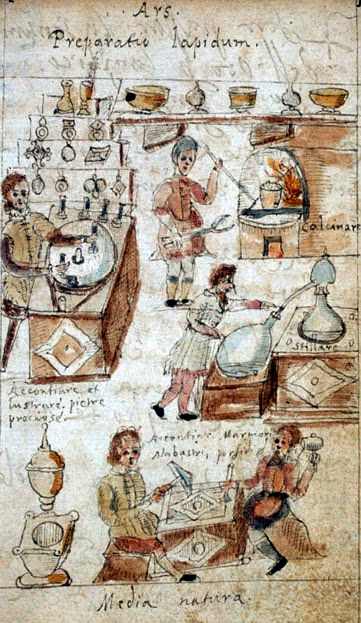 Ars.
Preparatio lapidum.
Calcinare
Stillare.
Accontiare et
lustrare. pietre
prociose.
Accontiare Marmori
Alabastri, porfiri
Media natura.